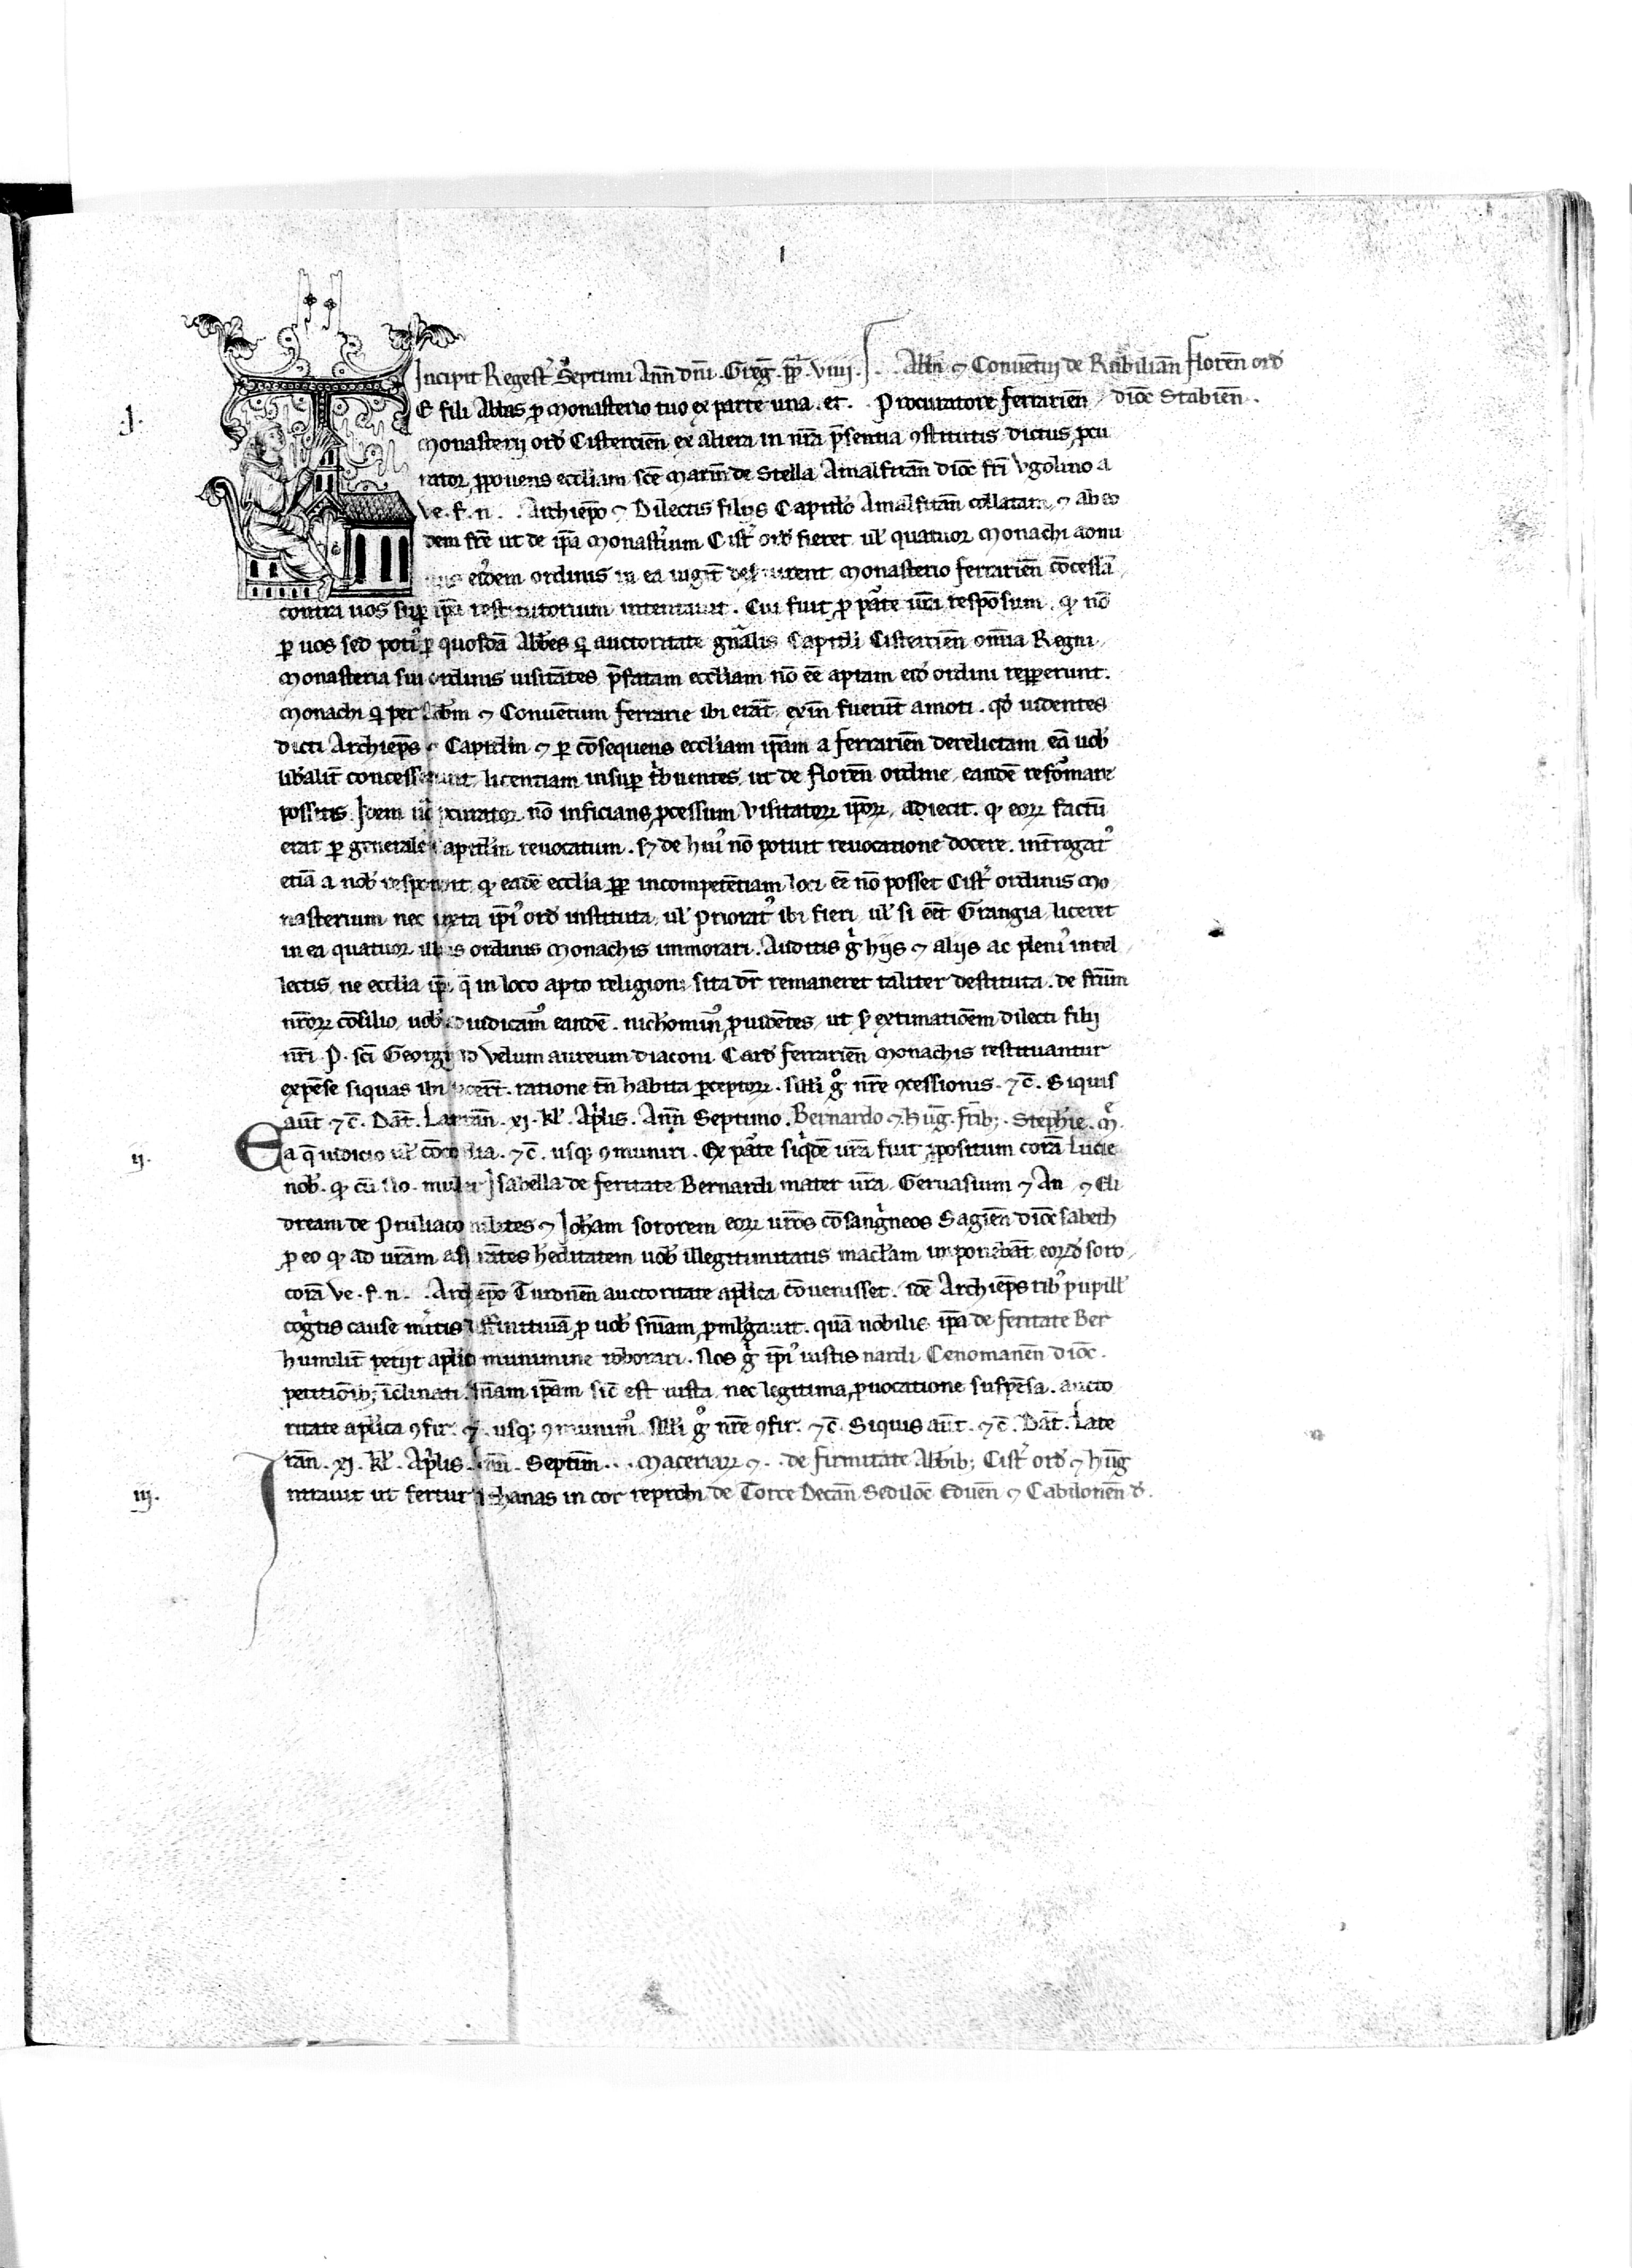 1
Incipit Regest̄ Septimi Ann̄ dn̄i Greḡ . pp̄ . viiij . . . Abb̄i ⁊ Conuētui de Rubiliān Floreñ ord̄
.j. E fili Abbas ꝓ Monasterio tuo ex parte una . et . . Procuratore Ferrarieñ dioc̄ Stabieñ .
Monasterij ord̄ Cistercieñ ex altera in nr̄a p̄sentia ꝯstitutis dictus ꝓcu
rator ꝓponens eccl̄iam sc̄e Marie de Stella Amalfitañ dioc̄ fr̄i Vgolino a
Ve . f . n . . . Archiep̄o ⁊ Dilectis filijs Capitl̄o Amalfitañ collatam ⁊ ab eo
dem fr̄e ut de ip̄a Monast̄ium Cist̄ ord̄ fieret ul̓ quatuor Monachi ad mi
nus eiꝰdem ordinis in ea iugit̄ deseruirent Monasterio Ferrarieñ cōcessā
contra uos suꝑ ip̄a restitutorium intentauit . Cui fuit ꝓ parte ur̄a respōsum . ꝙ nō
ꝑ uos sed potiꝰ ꝑ quosdā Abb̄es qͥ auctoritate gn̄alis Capitl̓i Cistercieñ om̄ia Regni
Monasteria sui ordinis uisitātes p̄fatam eccl̄iam nō eē aptam eid̄ ordini repperunt .
Monachi qͥ per Abb̄m ⁊ Conuētum Ferrarie ibi erāt exīn fuerūt amoti . qd̓ uidentes
dicti Archiep̄s ⁊ Capitl̄m ⁊ ꝑ cōsequens eccl̄iam ip̄am a Ferrarieñ derelictam eā uob̓
lib̓alit̄ concesserunt licentiam insuꝑ tͥbuentes ut de Floreñ ordine eandē reformare
possitis . Idem uͦ procurator nō inficians ꝓcessum Visitatorꝝ ip̄orꝝ adiecit . ꝙ eorꝝ factū
erat ꝑ generale Capitl̄m reuocatum . sꝫ de hui̓ nō potuit reuocatione docere . int̄rogatꝰ
etiā a nob̓ respondit ꝙ eadē eccl̄ia ꝓꝑ incompetētiam loci eē nō posset Cist̄ ordinis Mo
nasterium nec iuxta ip̄iꝰ ord̄ instituta ul̓ prioratꝰ ibi fieri ul̓ si eēt Grangia liceret
in ea quatuor illius ordinis Monachis immorari . Auditis gͥ hijs ⁊ alijs ac pleniꝰ intel
lectis ne eccl̄ia ip̄a q̄ in loco apto religioni sita dr̄ remaneret taliter destituta . de fr̄um
nr̄orꝝ cōsilio uob̓ adiudicamꝰ eandē . nichominꝰ ꝓuidētes ut ẜ extimatiōem dilecti filij
nr̄i . P . sc̄i Georgij ad velum aureum diaconi Card̄ Ferrarieñ Monachis restituantur
expēse siquas ibi fecerīt . ratione tn̄ habita ꝑceptorꝝ . Nulli gͦ nr̄e ꝯcessionis . ⁊c̄ . Siquis
aut̄ ⁊c̄ . Dat̄ . Laterañ . xj . kl̓ . Ap̓lis . Ann̄ Septimo . Bernardo ⁊ huḡ . fr̄ibꝫ . Stephīe . m̄
.ij. Ea q̄ iudicio ul̓ cōcordia . ⁊c̄ . usqꝫ ꝯmuniri . Ex parte siqͥdē ur̄a fuit ꝓpositum corā Lucie
nob̓ . ꝙ cū No . mulier Isabella de feritate Bernardi mater ur̄a Geruasium ⁊ An ⁊ Eli
dream de Pruliaco milites ⁊ Joh̄am sororem eorꝝ ur̄os cōsangͥneos Sagieñ dioc̄ sabeth
ꝓ eo ꝙ ad ur̄am aspirātes hēditatem uob̓ illegitimitatis macl̄am imponebāt eorꝝd̓ soro
corā Ve . f . n . . . Archiep̄o Turoneñ auctoritate ap̄lica cōuenisset . idē Archiep̄s ribꝰ pupill̓
cogͥtis cause mͥitis diffinitiuā ꝓ uob̓ sn̄iam ꝓmlgauit . quā nobilis ip̄a de feritate Ber
humilit̄ petijt ap̄lico munimine roborari . Nos gͥ ip̄iꝰ iustis nardi Cenomaneñ dioc̄ .
petitiōibꝫ īclinati sn̄iam ip̄am sic̄ est iusta nec legitima ꝓuocatione suspēsa . aucto
ritate ap̄lica ꝯfir . ⁊ . usqꝫ ꝯmunimꝰ . Nulli gͦ nr̄e ꝯfir . ⁊c̄ . Siquis aut̄ . ⁊c̄ . Dat̄ . Late
rañ . xj . kl̓ . Ap̓lis . Ann̄ . Septim̄ . . . Maceriarꝝ ⁊ . . de firmitate Abbibꝫ Cist̄ ord̄ ⁊ huḡ
.iij. Intrauit ut fertur sathanas in cor reprobi de Torce Decañ Sedeloc̄ Edueñ ⁊ Cabiloneñ d̓ .